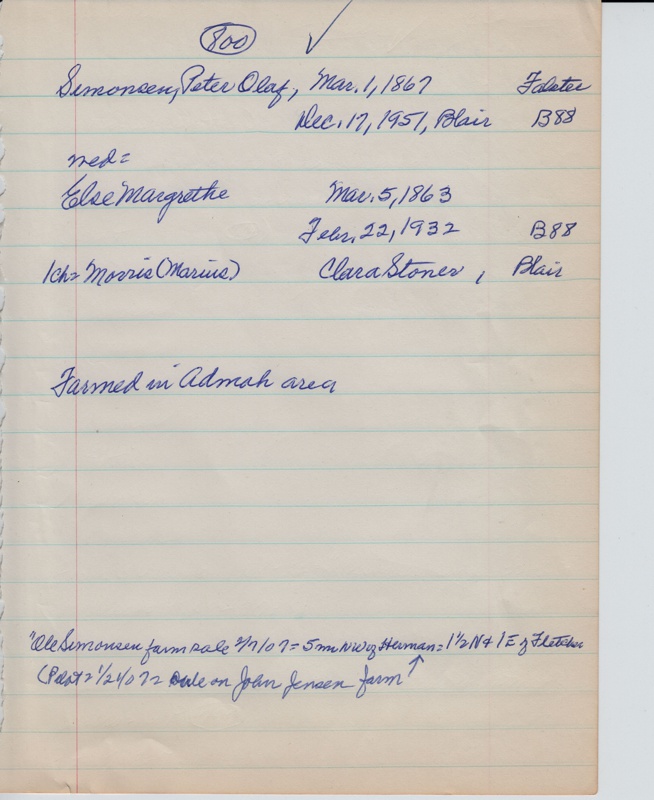 800
Simonsen, Peter Olaf, Mar. 1, 1867 Falster
Dec. 17, 1951, Blair B88
med=
Else Margrethe Mar. 5, 1863
Febr. 22, 1932 B88
1ch= Morris (Marius) Clara Stoner, Blair
Farmed in Admah area
"Ole Simonsen farm sale 2/7/07 = 5 mi NW of Herman = 1 1/2 N & 1 E of Fletcher
(Pilot = 1/24/07 = sale on John Jensen farm